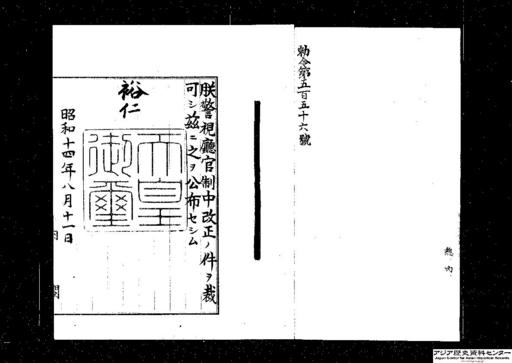 勅令第五百五十六號
朕警視廳官制中改正ノ件ヲ裁
可シ茲ニ之ヲ公布セシム
裕仁
天皇御璽
昭和十四年八月十一日
内
閣
アジア歴史資料センター
Japan Center for Asian Historical Records